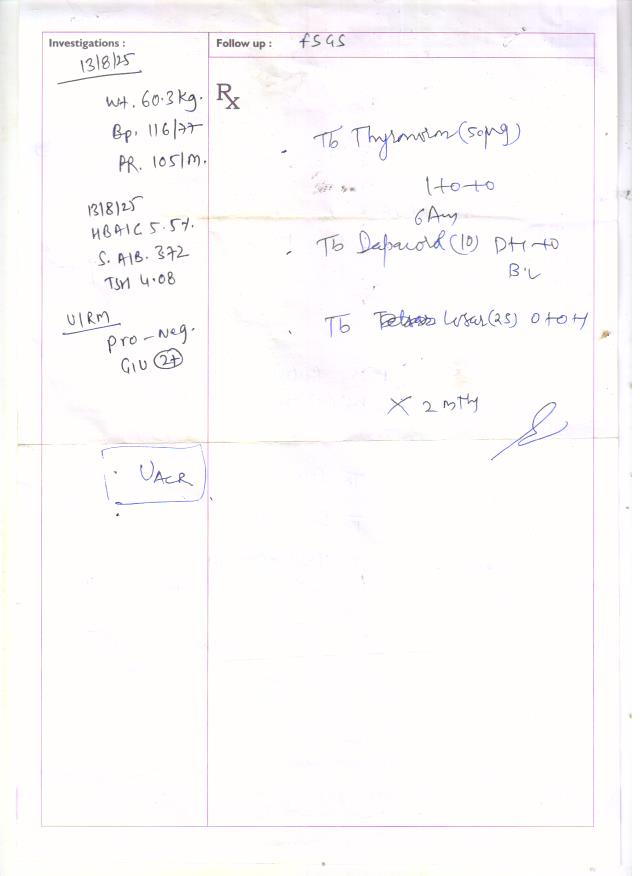 Investigations :
Follow up : FSGS
13/8/25
Wt. 60.3 kg.
Bp. 116/77
PR. 105/M.
Rx
Tb Thyronorm (50µg)
1+0+0
6 Am
13/8/25
HBA1C 5.5%.
S. Alb. 3.72
TSH 4.08
Tb Dapacord (10) 0+1+0
U/RM
Pro - Neg.
GlU 2+
Tb Losar (25) 0+0+1
X 2 mth
UACR